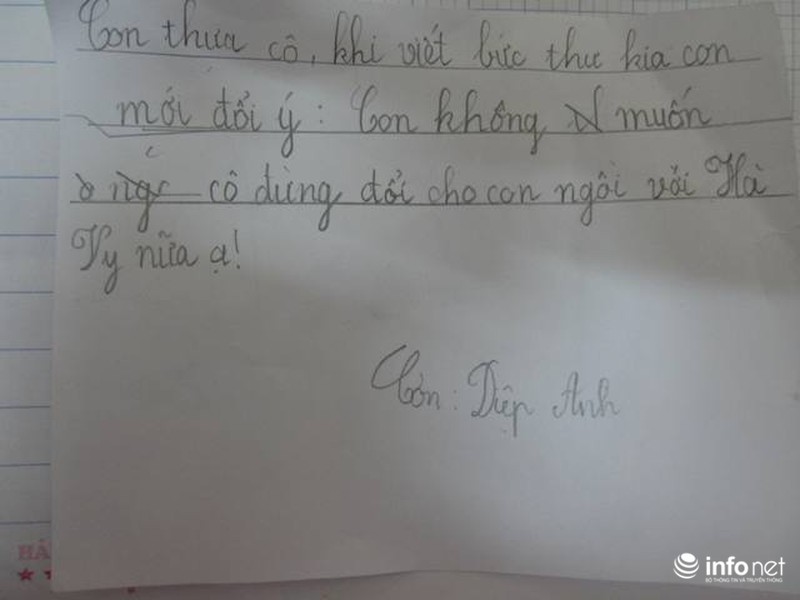 Con thưa cô, khi viết bức thư kia con
mới đổi ý: Con không muốn
cô đừng đổi cho con ngồi với Hà
Vy nữa ạ!
Con: Diệp Anh
HẢ
infonet
BỘ THÔNG TIN VÀ TRUYỀN THÔNG